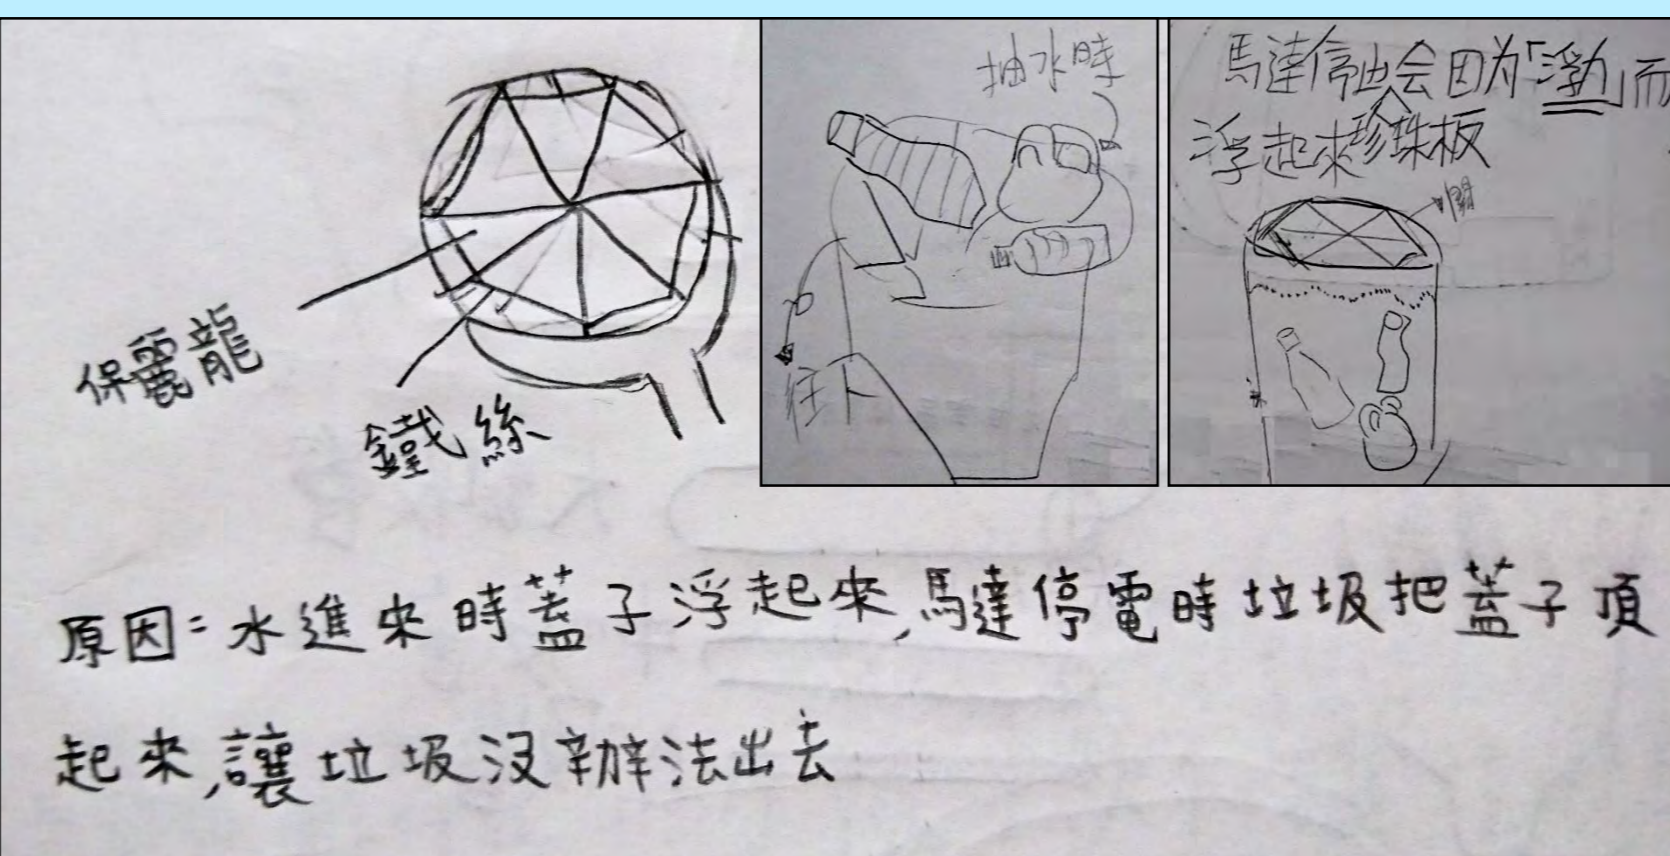 保麗龍
鐵絲
抽水時
往下
馬達停也会因为「浮力」而
浮起來珍珠板
關
原因：水進來時蓋子浮起來,馬達停電時垃圾把蓋子頂
起來,讓垃圾沒辦法出去